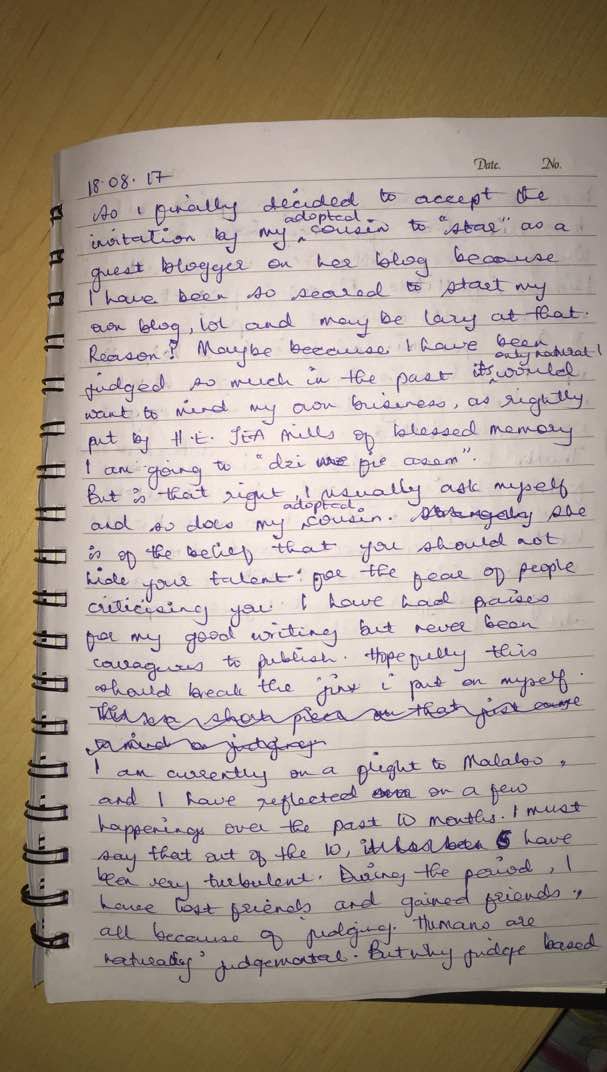 Date. No.
18.08.17
So i finally decided to accept the
invitation by my adopted cousin to "star" as a
guest blogger on her blog because
I have been so scared to start my
own blog, lol and may be lazy at that.
Reason? Maybe because I have been
judged so much in the past its only natural I would
want to mind my own business, as rightly
put by H.E. JEA Mills of blessed memory
I am going to "dzi wo fie asem".
But is that right, I usually ask myself
and so does my adopted cousin. Strangely she
is of the belief that you should not
hide your talent for the fear of people
criticising you. I have had praises
for my good writing but never been
courageous to publish. Hopefully this
should break the jinx i put on myself.
This is a short piece on that just came
to mind on judging
I am currently on a flight to Malabo,
and I have reflected on a few
happenings over the past 10 months. I must
say that out of the 10, it has been 6 have
been very turbulent. During the period, I
have lost friends and gained friends,
all because of judging. Humans are
naturally judgemental. But why judge based